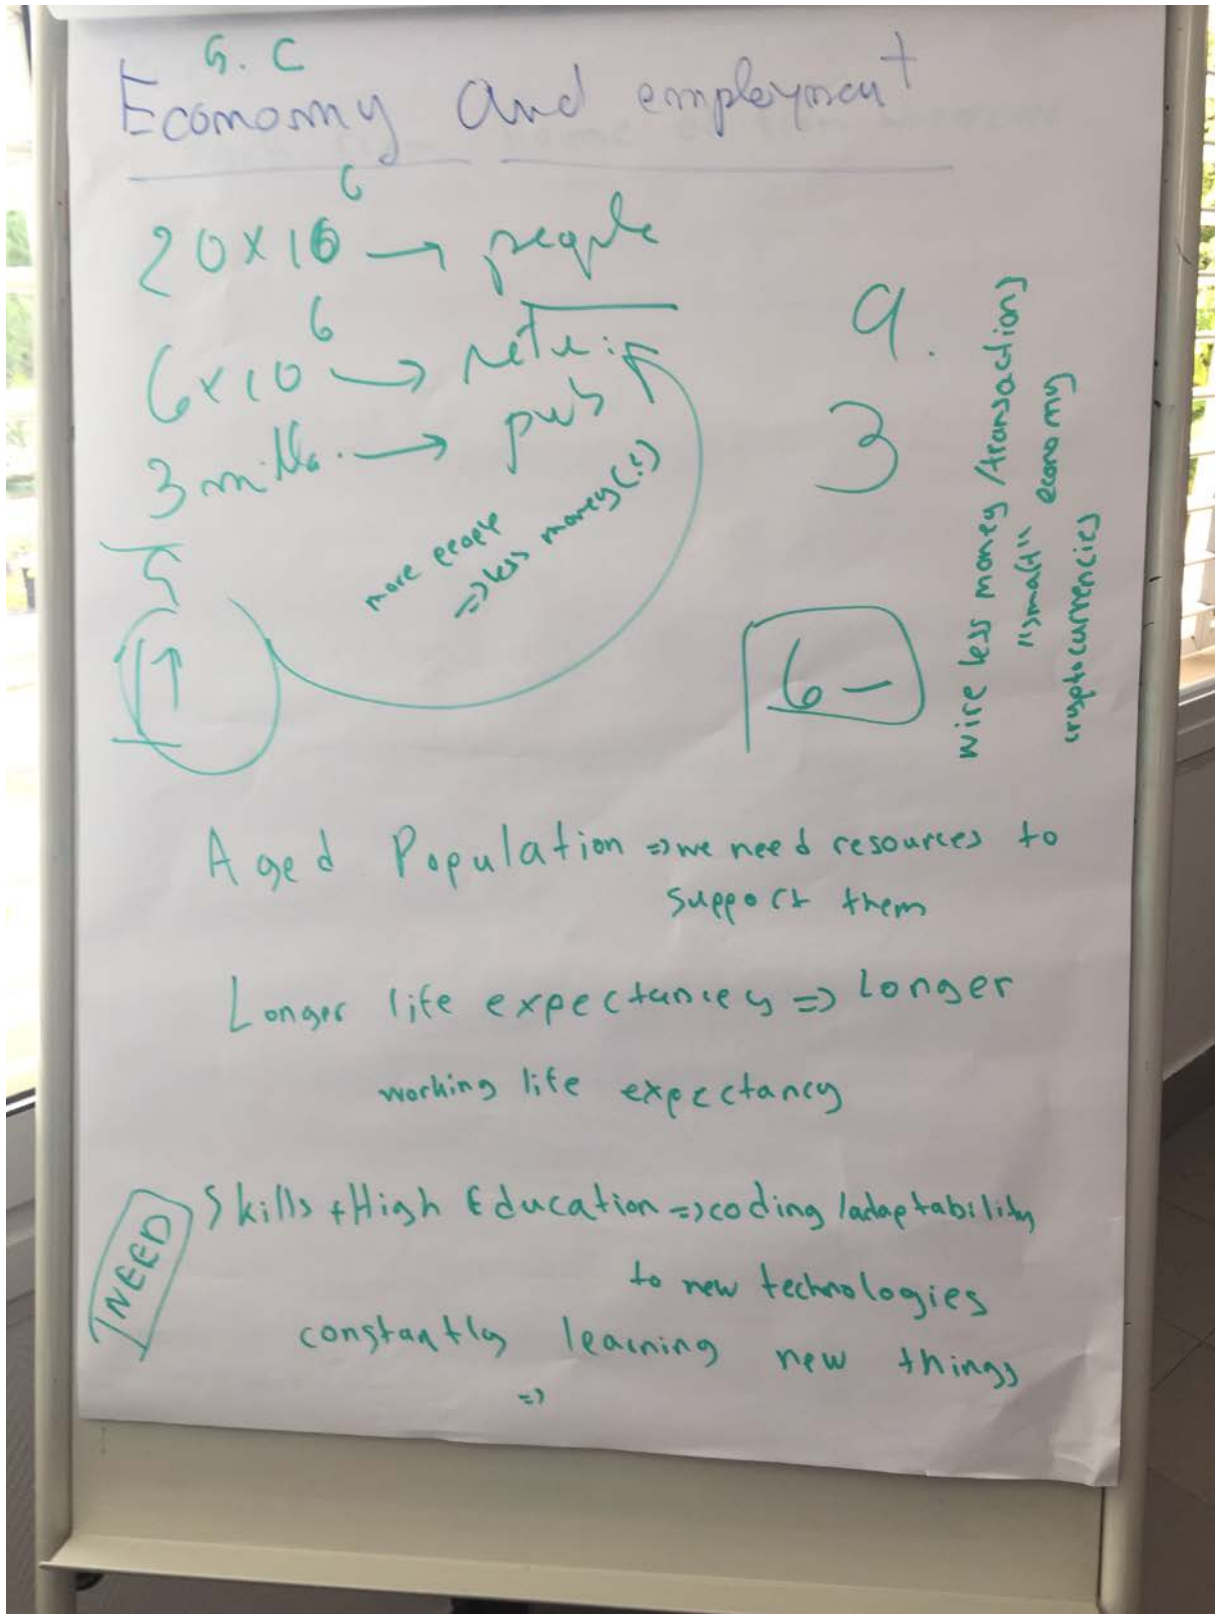 G. C
Economy and employment
20 x 10⁶ → people
6 x 10⁶ →
3 →
more people
=> less money (!)
9.
3
6 –
wire less money / transactions
"smart" economy
cryptocurrencies
Aged Population => we need resources to
support them
Longer life expectancy => Longer
working life expectancy
NEED
Skills + High Education => coding / adaptability
to new technologies
constantly learning new things
=>